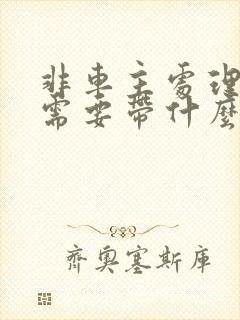 非車主處理
需要帶什麼
齊奧塞斯庫